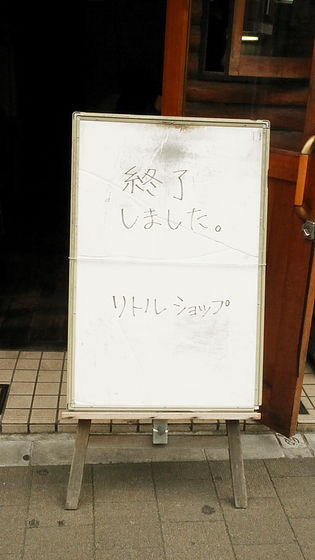 終了
しました。
リトルショップ